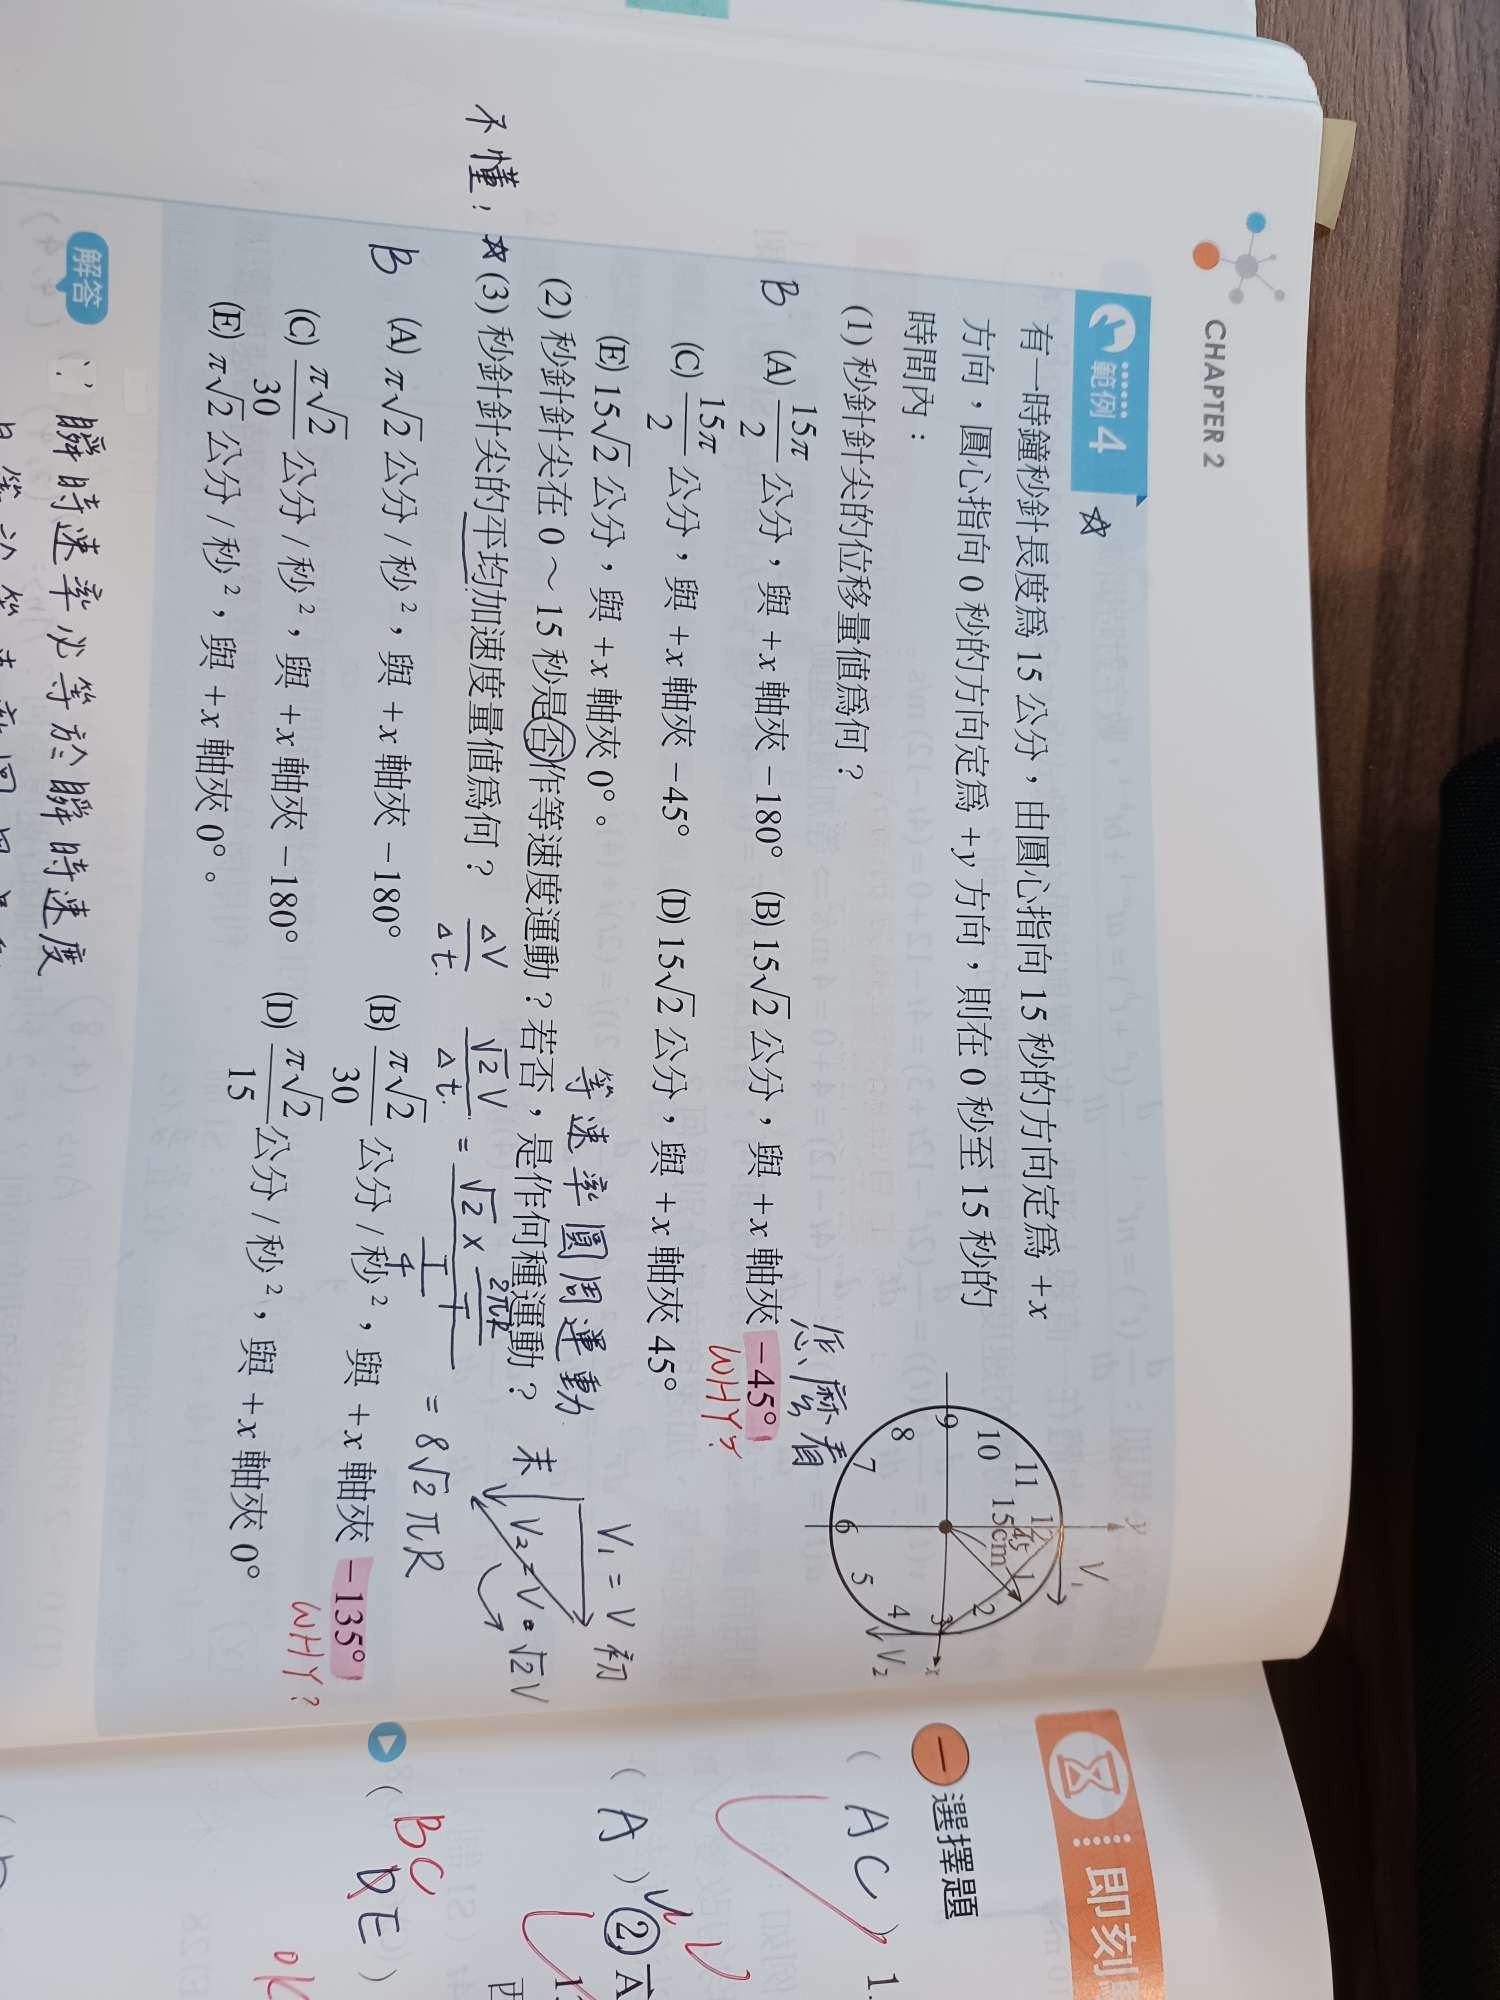 CHAPTER 2
範例 4 ☆
有一時鐘秒針長度為 15 公分，由圓心指向 15 秒的方向定為 +x
方向，圓心指向 0 秒的方向定為 +y 方向，則在 0 秒至 15 秒的
時間內：
(1) 秒針針尖的位移量值為何？
B (A) 15π/2 公分，與 +x 軸夾 −180° (B) 15√2 公分，與 +x 軸夾 −45°
怎麼看
WHY?
(C) 15π/2 公分，與 +x 軸夾 −45° (D) 15√2 公分，與 +x 軸夾 45°
(E) 15√2 公分，與 +x 軸夾 0°。
等速率圓周運動
(2) 秒針針尖在 0～15 秒是否作等速度運動？若否，是作何種運動？
不懂：☆ (3) 秒針針尖的平均加速度量值為何？
ΔV/Δt √2V/Δt = √2 × 2πR/T / T/4 = 8√2πR
B (A) π√2 公分 / 秒²，與 +x 軸夾 −180° (B) π√2/30 公分 / 秒²，與 +x 軸夾 −135°
WHY?
(C) π√2/30 公分 / 秒²，與 +x 軸夾 −180° (D) π√2/15 公分 / 秒²，與 +x 軸夾 0°
(E) π√2 公分 / 秒²，與 +x 軸夾 0°。
y
V₁
12
11
10
9
8
7
6
5
4
3
2
1
45
15cm
x
V₂
V₁ = V 初
末 V₂ = V
√2V
解答
∵ 瞬時速率必等於瞬時速度
即刻
一 選擇題
( AC ) 1.
( A ) 2. A
1
( BC
DE )
OK